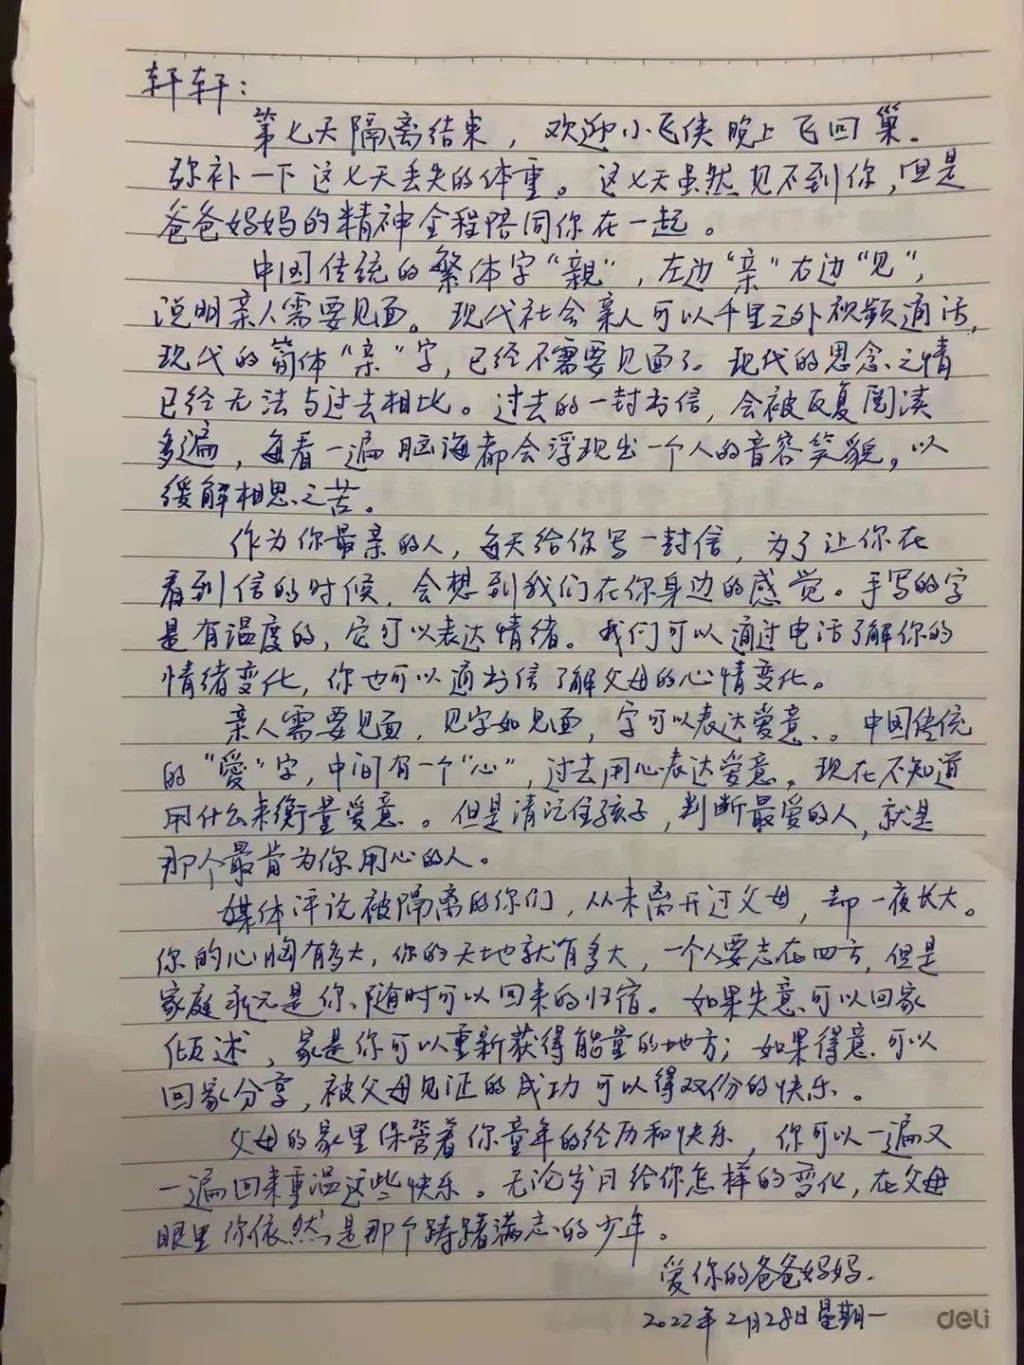 轩轩：
第七天隔离结束，欢迎小飞侠晚上飞回巢。
弥补一下这七天丢失的体重。这七天虽然见不到你，但是
爸爸妈妈的精神全程陪同你在一起。
中国传统的繁体字“親”，左边“亲”右边“见”，
说明亲人需要见面。现代社会亲人可以千里之外视频通话，
现代的简体“亲”字，已经不需要见面了。现代的思念之情
已经无法与过去相比。过去的一封书信，会被反复阅读
多遍，每看一遍脑海都会浮现出一个人的音容笑貌，以
缓解相思之苦。
作为你最亲的人，每天给你写一封信，为了让你在
看到信的时候，会想到我们在你身边的感觉。手写的字
是有温度的，它可以表达情绪。我们可以通过电话了解你的
情绪变化，你也可以通书信了解父母的心情变化。
亲人需要见面，见字如见面，字可以表达爱意。中国传统
的“愛”字，中间有一个“心”，过去用心表达爱意，现在不知道
用什么来衡量爱意。但是请记住孩子，判断最爱的人，就是
那个最肯为你用心的人。
媒体评论被隔离的你们，从未离开过父母，却一夜长大。
你的心胸有多大，你的天地就有多大，一个人要志在四方，但是
家庭永远是你随时可以回来的归宿。如果失意可以回家
倾述，家是你可以重新获得能量的地方；如果得意可以
回家分享，被父母见证的成功可以得双份的快乐。
父母的家里保管着你童年的经历和快乐，你可以一遍又
一遍回来重温这些快乐。无论岁月给你怎样的变化，在父母
眼里你依然是那个踌躇满志的少年。
爱你的爸爸妈妈.
2022年2月28日星期一
deli